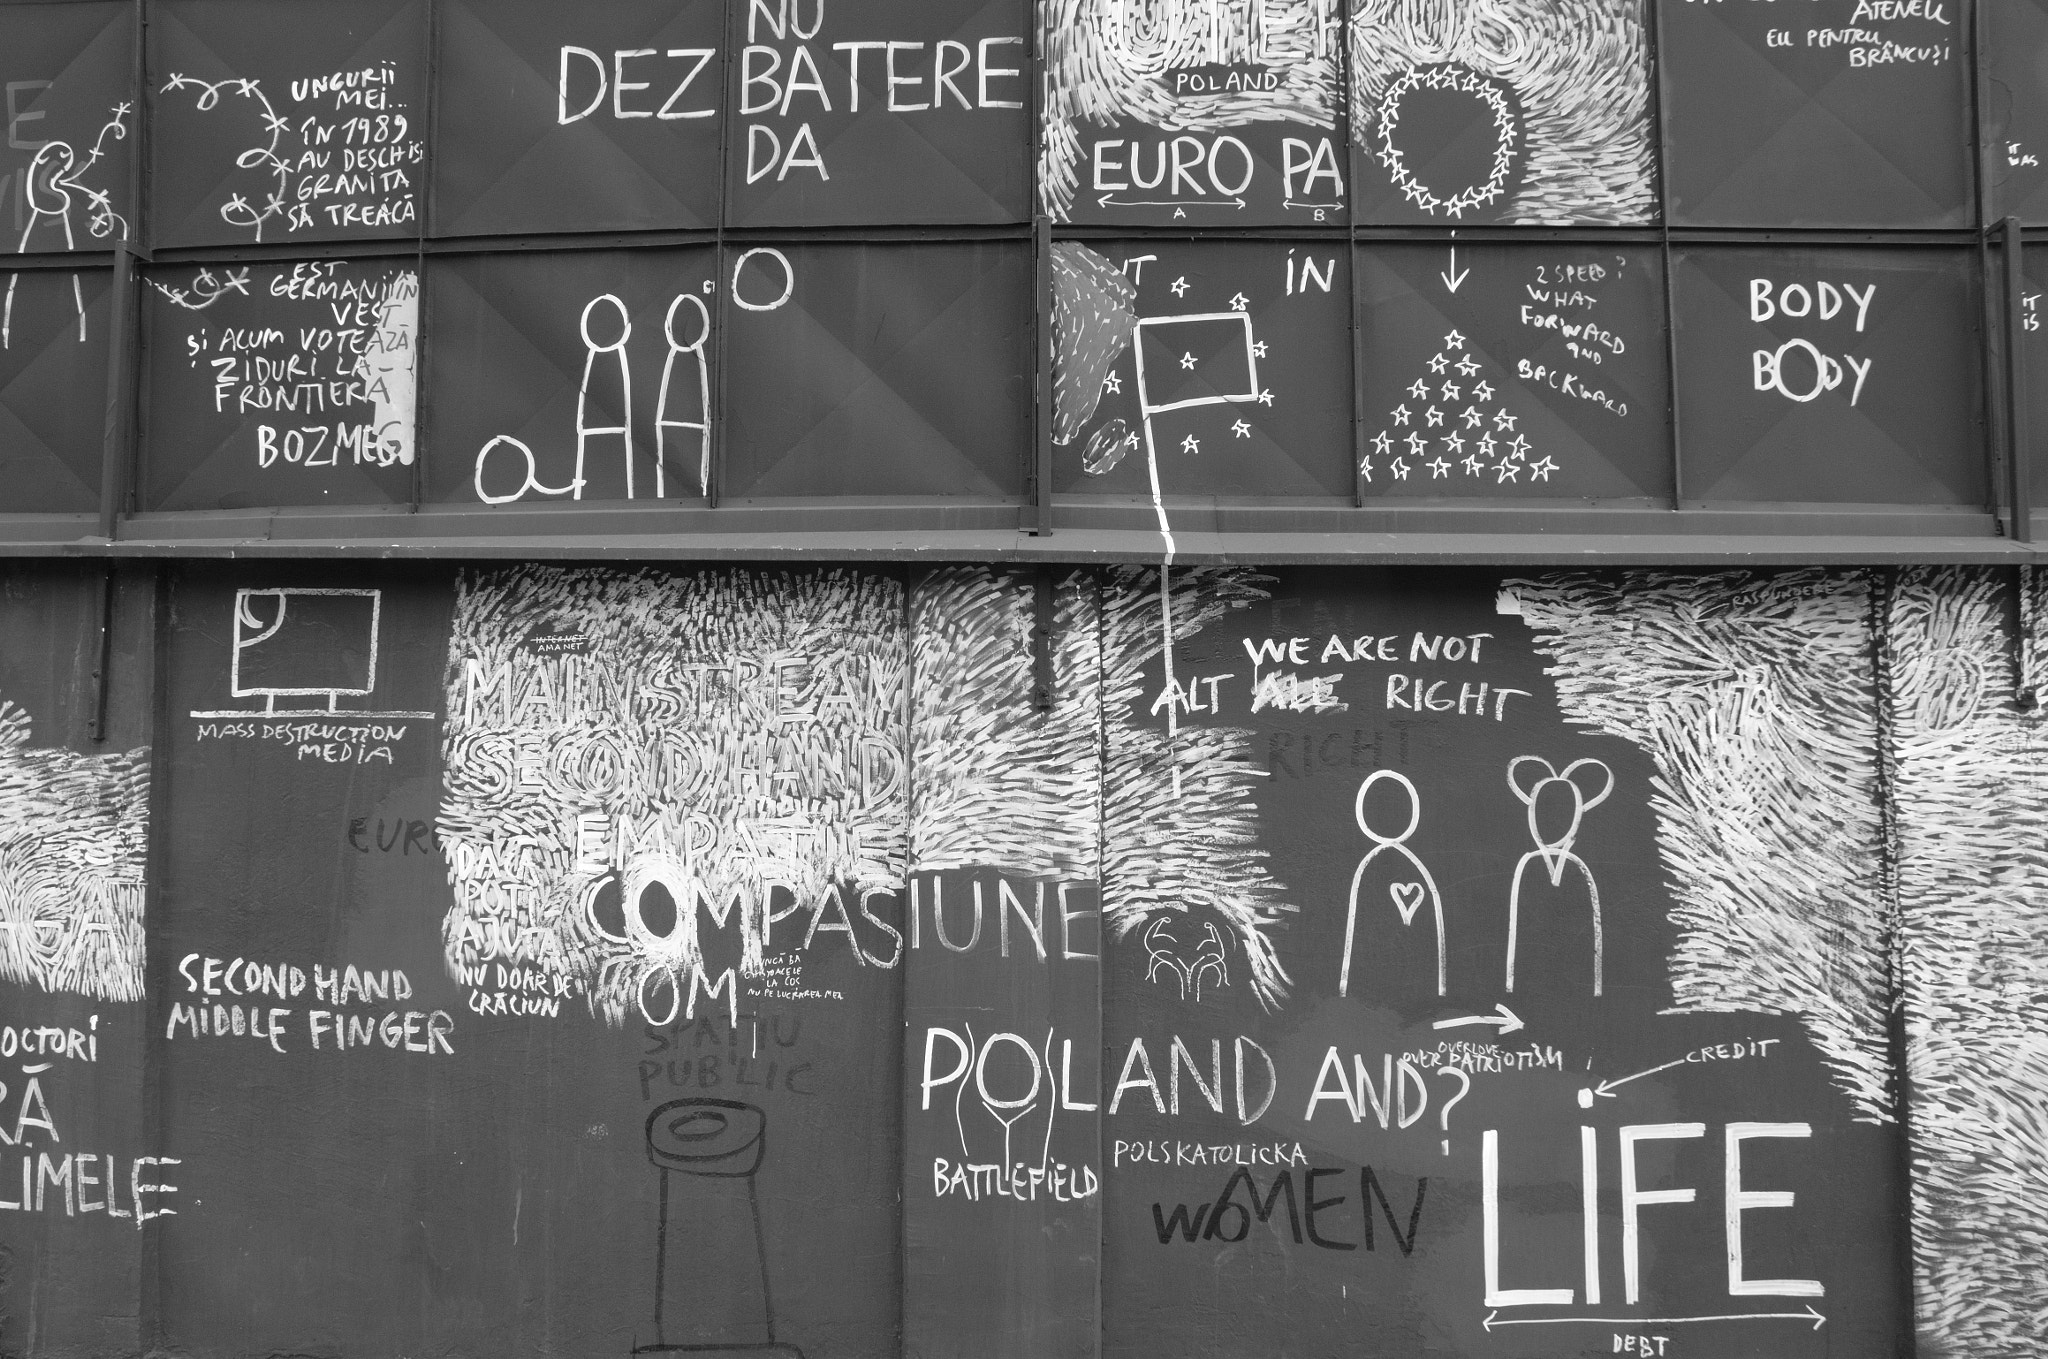 UNGURII
MEI...
ÎN 1989
AU DESCHIS
GRANITA
SĂ TREACĂ
EST
GERMANII ÎN
VEST
ȘI ACUM VOTEAZĂ
ZIDURI LA
FRONTIERA
BOZMEG
NU
DEZBATERE
DA
UTERUS
POLAND
EURO PA
A
B
IN
2 SPEED?
WHAT
FORWARD
AND
BACKWARD
ATENEU
EU PENTRU
BRÂNCUȘI
BODY
BODY
IT
WAS
IT
IS
MASS DESTRUCTION
MEDIA
INTERNET
AMANET
MAINSTREAM
SECOND HAND
EMPATIE
DACĂ
POTI
AJUTA
NU DOAR DE
CRĂCIUN
COMPASIUNE
OM
LA COC
NU PE LUCRAREA MEA
SPATIU
PUBLIC
EURO
SECOND HAND
MIDDLE FINGER
DOCTORI
RĂ
LIMELE
WE ARE NOT
ALT ALL RIGHT
RIGHT
RASPUNDERE
POLAND AND?
OVERLOVE
OVER PATRIOTISM
BATTLEFIELD
POLSKATOLICKA
WOMEN
CREDIT
LIFE
DEBT